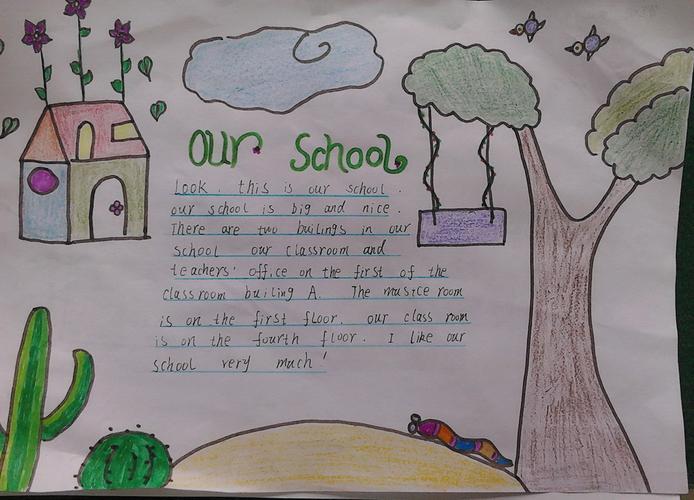 our school
Look. this is our school.
our school is big and nice.
There are two builings in our
school our classroom and
teachers' office on the first of the
classroom builing A. The mustce room
is on the first floor. our class room
is on the fourth floor. I like our
school very much!